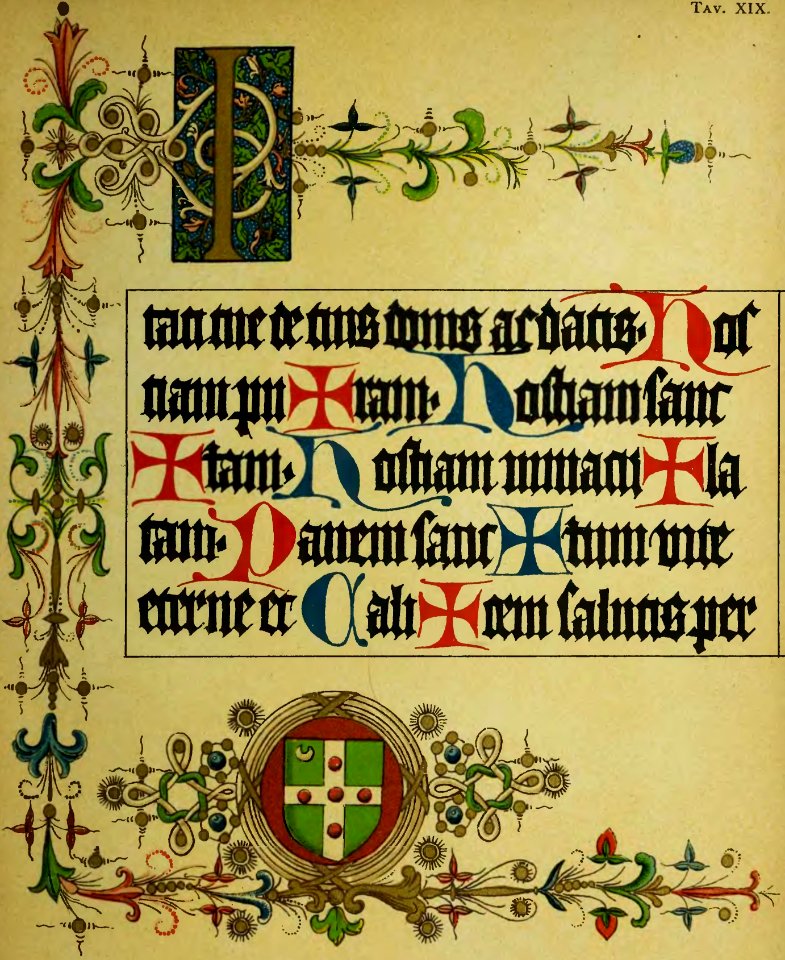 TAV. XIX.
I
tati tue de tuis donis ac datis. Hos
tiam pu✠ram. Hostiam sanc
✠tam. Hostiam immacu✠la
tam. Panem sanc✠tum vite
eterne et Cali✠cem salutis per